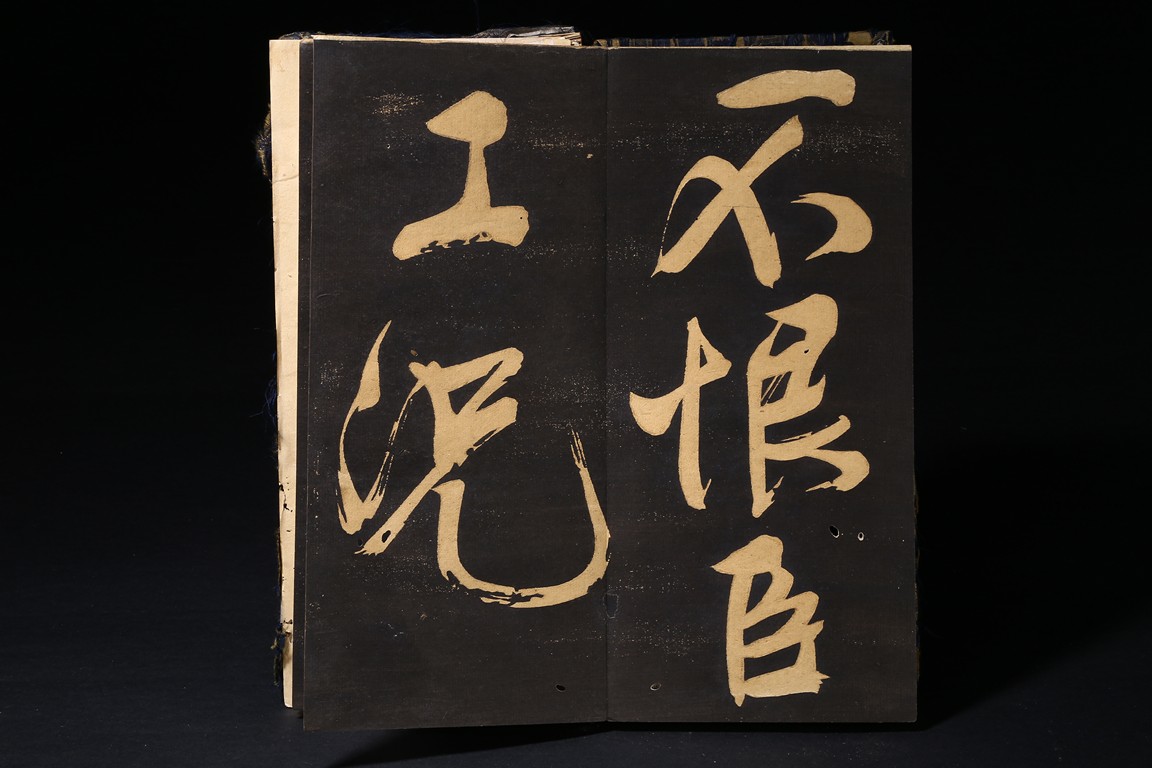 不恨臣
工況